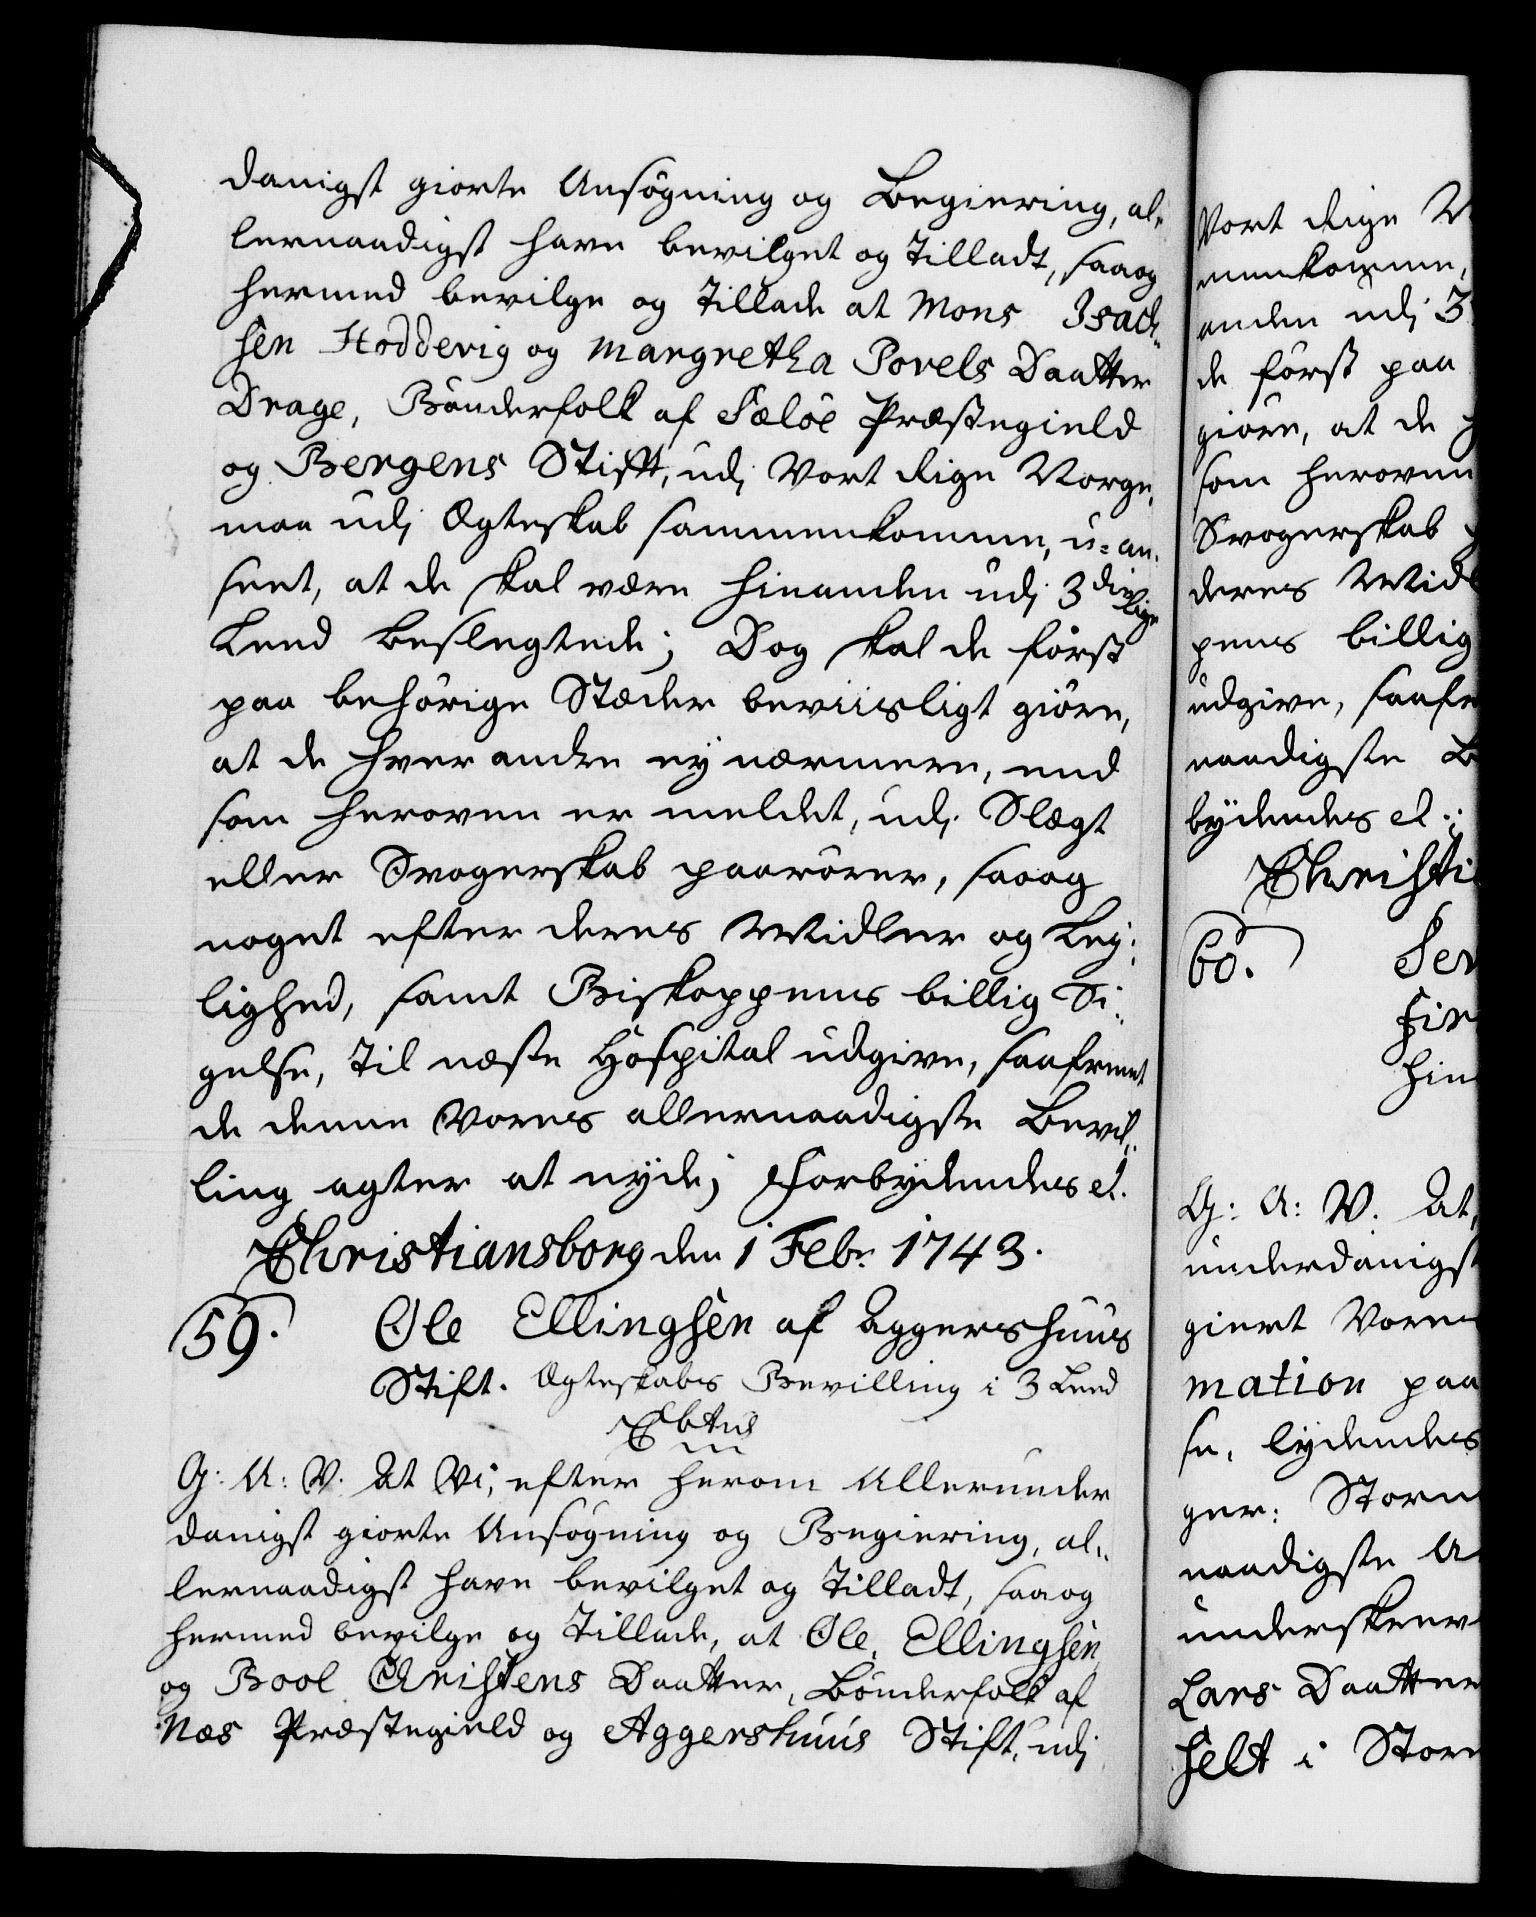 danigst giorte Ansøgning og Begiering, al„
lernaadigst have bevilget og Tilladt, saaog
hermed bevilge og Tillade at Mons Isach„
sen Hoddevig og Margretha Povels Daatter
Drage, Bønderfolk af Sæløe Præstegield
og Bergens Stifft, udj Vort Rige Norge,
maa udj Ægteskab sammenkomme, u-an„
seet, at de skal være hinanden udj 3die lige
Leed beslegtede; Dog skal de først
paa behørige Stæder beviisligt giøre,
at de hverandre ey nærmere, end
som heroven er meldet, udj Slægt
eller Svogerskab paarører, saaog
noget efter deres Midler og Ley„
lighed, samt Biskoppens billig Si„
gelse, til næste Hospital udgive, saafremt
de denne Vores allernaadigste Bevil„
ling agter at nyde; Forbydendes et.
Christiansborg den 1 Febr. 1743.
59. Ole Ellingsen af Aggershuus
Stift. Ægteskabs Bevilling i 3 Leed
G: A: V. At Vi, efter herom Allerunder
danigst giorte Ansøgning og Begiering, al„
lernaadigst have bevilget og Tilladt, saaog
hermed bevilge og Tillade, at Ole Ellingsen
og Boel Christens Daatter, Bønderfolk af
Næs Præstegield og Aggershuus Stift, udj
Vort Rige
menkomme,
anden udj 3
de først paa
giøre, at de
som heroven
Svogerskab
deres Midl
pens billig
udgive, saafr
naadigste B
bydendes et.
Christi
60. Ser
Fin
hin
G: A: V. At,
underdanigst
giert Vores
mation paa
se, lydendes
ger: Storm
naadigste A
underskrev
Lars Daatter
felt i Storm